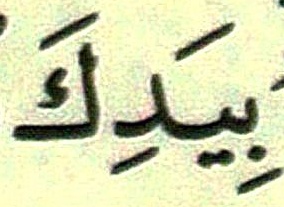 بِيَدِكَ